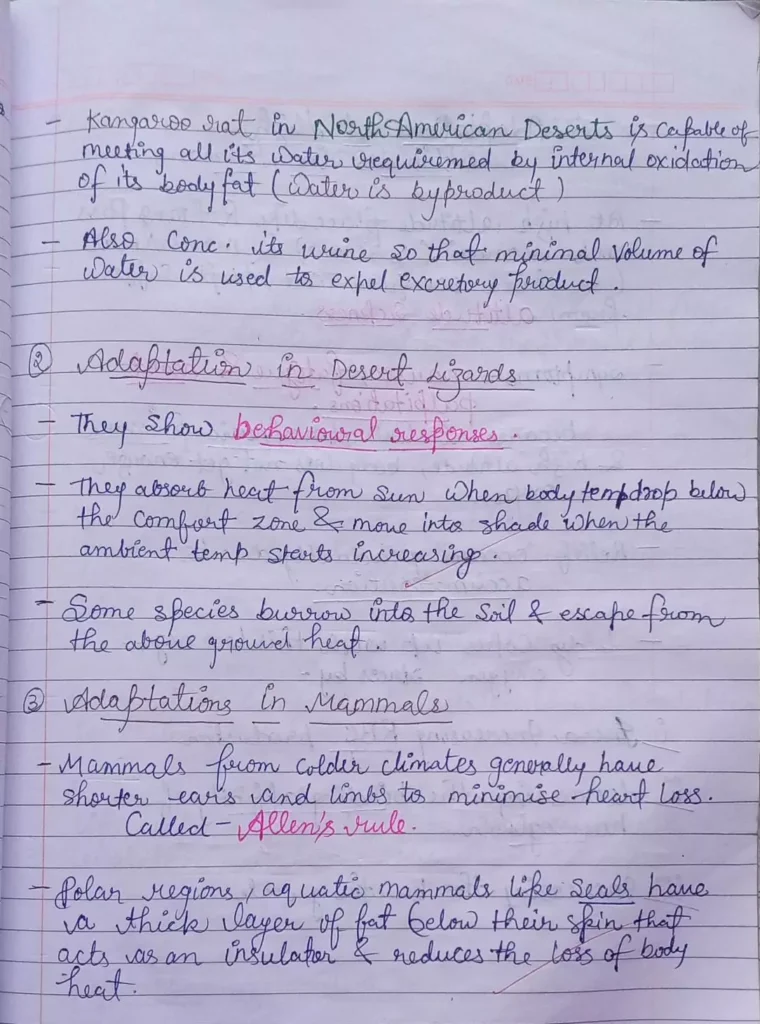 - Kangaroo rat in North American Deserts is capable of
meeting all its water requiremed by internal oxidation
of its body fat (Water is byproduct)
- Also Conc. its urine so that minimal volume of
Water is used to expel excretory product.
② Adaptation in Desert Lizards
- They show behavioural responses.
- They absorb heat from sun when body temp drop below
the comfort zone & move into shade when the
ambient temp starts increasing.
- Some species burrow into the soil & escape from
the above ground heat.
③ Adaptations in Mammals
- Mammals from colder climates generally have
shorter ears and limbs to minimise heart loss.
Called - Allen's rule.
- Polar regions, aquatic mammals like seals have
a thick layer of fat below their skin that
acts as an insulator & reduces the loss of body
heat.